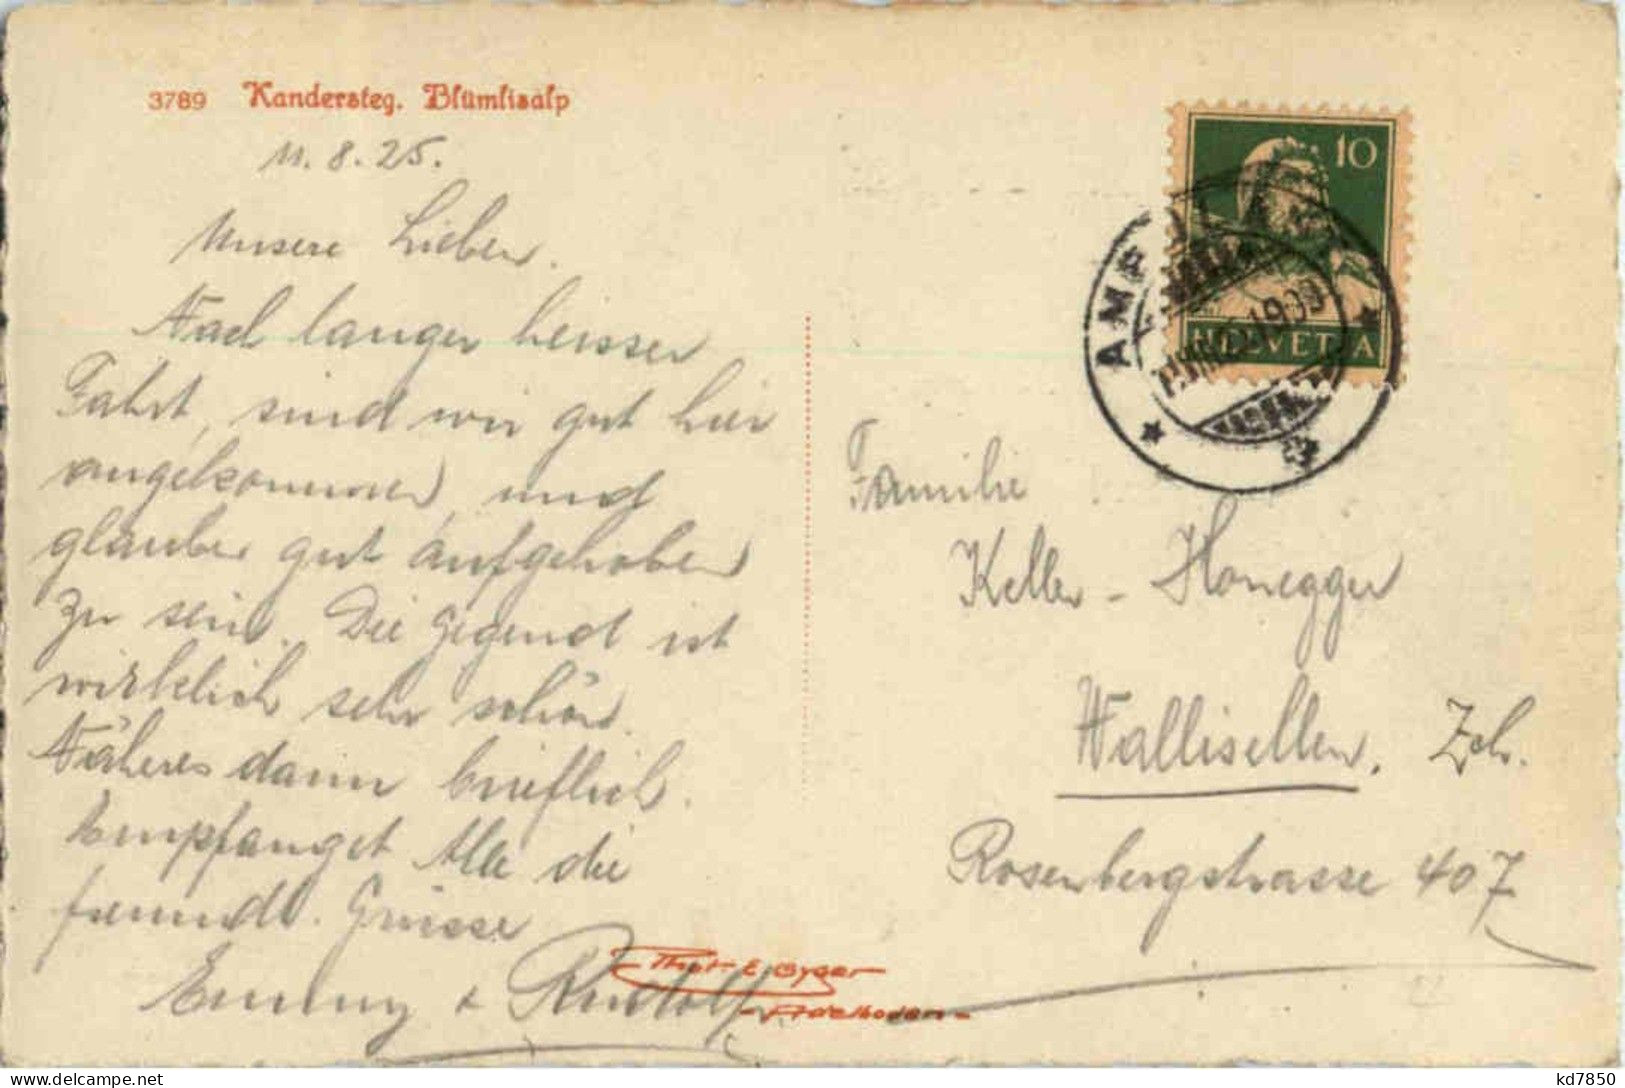 3789 Kandersteg. Blümlisalp
11. 8. 25.
Unsere Lieben.
Nach langer heisser
Fahrt, sind wir gut hier
angekommen, und
glauben gut aufgehoben
zu sein. Die Gegend ist
wirklich sehr schön.
Näheres dann brieflich.
Empfanget Alle die
freundl. Grüsse
Emmy & Rudolf
Phot. E. Gyger
- Adelboden -
10
HELVETIA
Familie
Keller - Honegger
Wallisellen. Zch.
Rosenbergstrasse 407
delcampe.net
kd7850